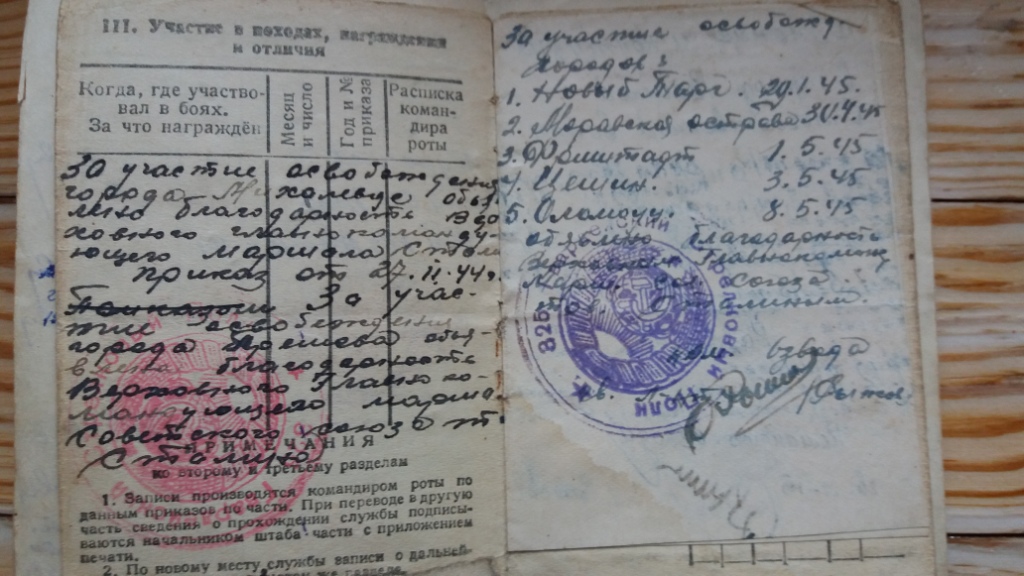 III. Участие в походах, награждения
и отличия
Когда, где участво-
вал в боях.
За что награждён
Месяц
и число
Год и №
приказа
Расписка
коман-
дира
роты
За участие освобождения
города Михалевце объя-
лено благодарность Вер
ховного главнокоманду
ющего маршала Стали
приказ от 27.11.44г.
За учас-
тие освобождения
города Прешева объя-
влена благодарность
Верховного Главноко-
мандующего марша
Советского союза т.
Сталина
ПРИМЕЧАНИЯ
ко второму и третьему разделам
1. Записи производятся командиром роты по
данным приказов по части. При переводе в другую
часть сведения о прохождении службы подписы-
ваются начальником штаба части с приложением
печати.
2. По новому месту службы записи о дальней-
За участие освобожд.
городов:
1. Новый Тарг. 29.1.45.
2. Моравска острава 30.4.45
3. Фрыштадт 1.5.45
4. Цешин. 3.5.45
5. Оломоуц. 8.5.45
объявлено благодарность
Верховного Главнокоманд
Марш. Сов. Союза
Сталиным.
взвода
Рыжов